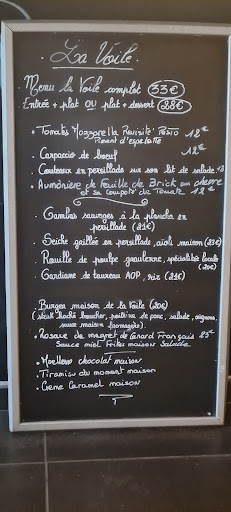 . La Voile .
. Menu la Voile complet 33€
Entrée + plat OU plat + dessert 28€
. Tomates Mozzarella Revisité Pesto 12€
Piment d'espelette
. Carpaccio de boeuf
. Couteaux en persillade sur son lit de salade 13
. Aumônière de feuille de Brick au chèvre
et sa compote de Tomate 12€
. Gambas sauvages à la plancha en
persillade (21€)
. Seiche grillée en persillade, aïoli maison (23€)
. Rouille de poulpe graulenne, spécialitée locale
(20€)
. Gardiane de taureau AOP, riz (21€)
. Burger maison de la Voile (20€)
(steak haché boucher, poitrine de porc, salade, oignons,
sauce maison fromagère).
. Rosace de magret de canard Français 25€
Sauce miel Frites maison Salade
. Moelleux chocolat maison
. Tiramisu du moment maison
. Crème Caramel maison